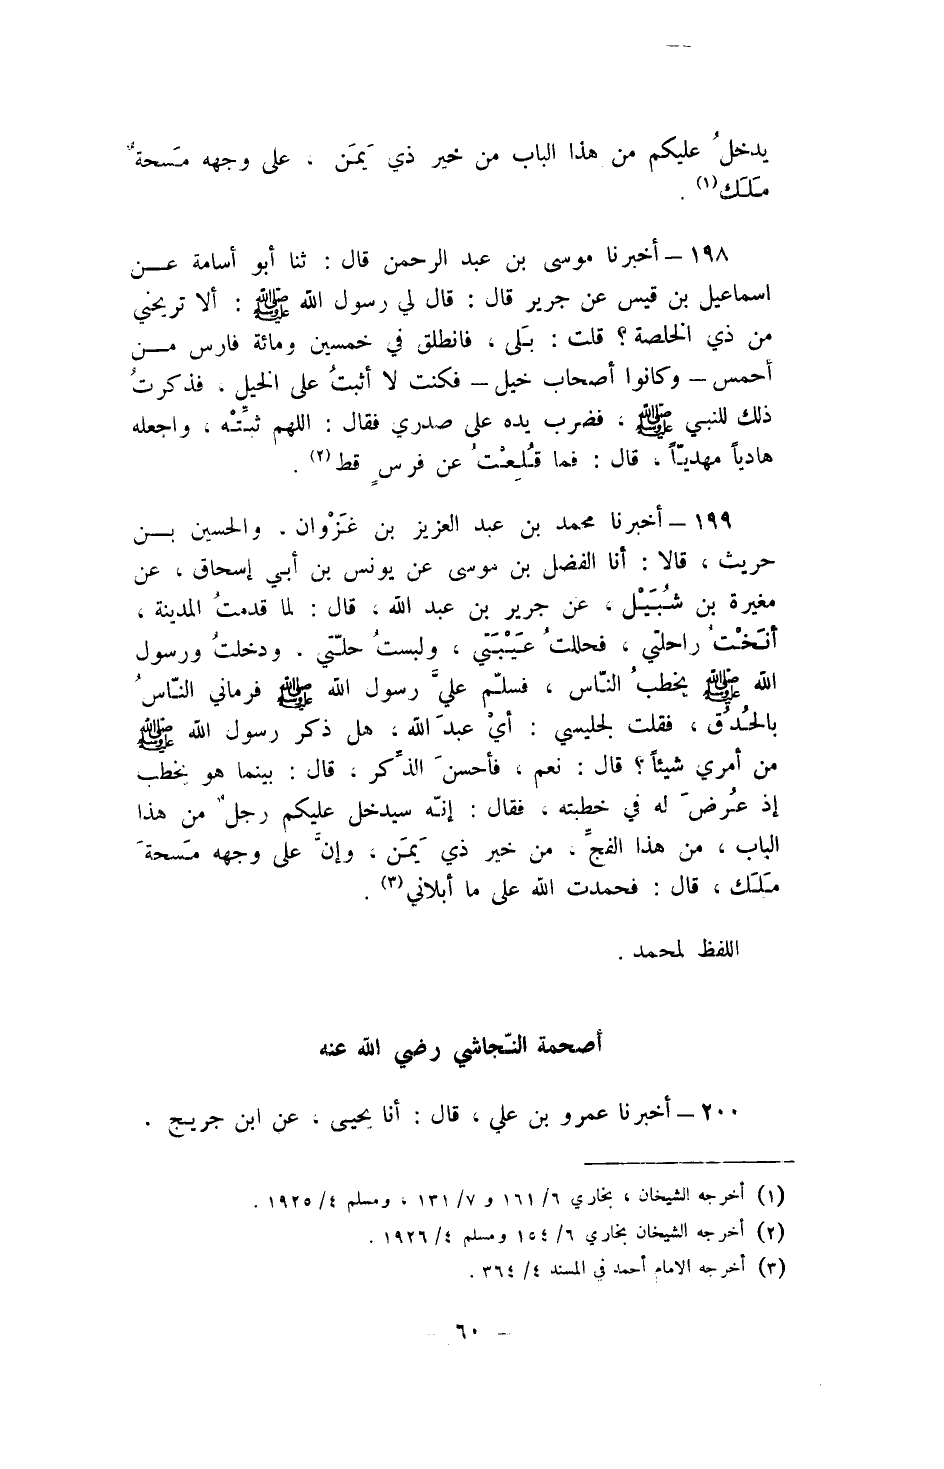 يدخلُ عليكم من هذا الباب من خير ذي يَمَن ، على وجهه مَسحةُ
مَلَك(١) .
١٩٨ – أخبرنا موسى بن عبد الرحمن قال : ثنا أبو أسامة عن
اسماعيل بن قيس عن جرير قال : قال لي رسول الله ﷺ : ألا تريحني
من ذي الخلصة ؟ قلت : بَلى ، فانطلق في خمسين ومائة فارس من
أحمس – وكانوا أصحاب خيل – فكنت لا أثبتُ على الخيل ، فذكرتُ
ذلك للنبي ﷺ ، فضرب يده على صدري فقال : اللهم ثبِّتْه ، واجعله
هادياً مهديّاً ، قال : فما قُلِعْتُ عن فرسٍ قط(٢) .
١٩٩ – أخبرنا محمد بن عبد العزيز بن غَزْوان . والحسين بن
حريث ، قالا : أنا الفضل بن موسى عن يونس بن أبي إسحاق ، عن
مغيرة بن شُبَيْل ، عن جرير بن عبد الله ، قال : لما قدمتُ المدينة ،
أنَخْتُ راحلتي ، فحللتُ عَيْبَتي ، ولبستُ حلّتي . ودخلتُ ورسول
الله ﷺ يخطبُ النّاس ، فسلّم عليَّ رسول الله ﷺ فرماني النّاسُ
بالحُدُق ، فقلت لجليسي : أيْ عبدَ الله ، هل ذكر رسول الله ﷺ
من أمري شيئاً ؟ قال : نعم ، فأحسنَ الذِّكر ، قال : بينما هو يخطب
إذ عُرضَ له في خطبته ، فقال : إنّه سيدخل عليكم رجلٌ من هذا
الباب ، من هذا الفجِّ ، من خير ذي يَمَن ، وإنَّ على وجهه مَسحةَ
مَلَك ، قال : فحمدت الله على ما أبلاني(٣) .
اللفظ لمحمد .
أصحمة النّجاشي رضي الله عنه
٢٠٠ – أخبرنا عمرو بن علي ، قال : أنا يحيى ، عن ابن جريج .
(١) أخرجه الشيخان ، بخاري ٦/ ١٦١ و ٧/ ١٣١ ، ومسلم ٤/ ١٩٢٥ .
(٢) أخرجه الشيخان بخاري ٦/ ١٥٤ ومسلم ٤/ ١٩٢٦ .
(٣) أخرجه الامام أحمد في المسند ٤/ ٣٦٤ .
– ٦٠ –